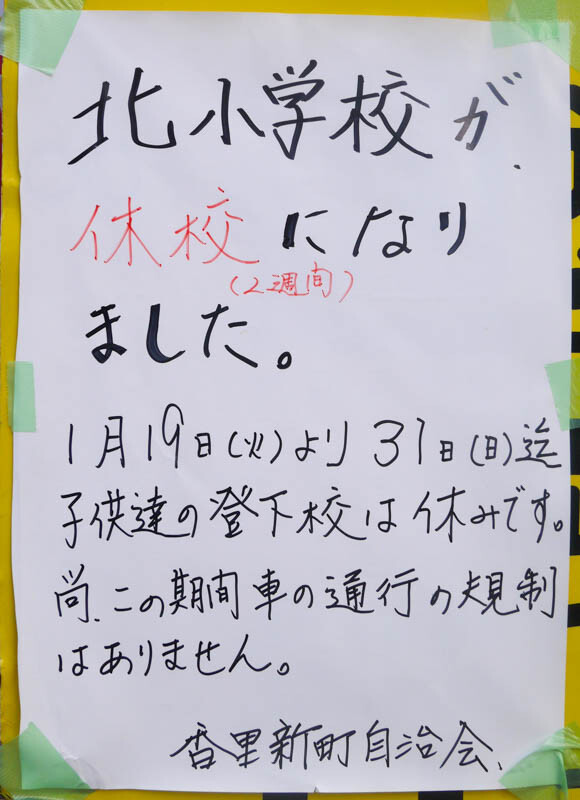 北小学校が、
休校になり
(2週間)
ました。
1月19日(火)より31日(日)迄
子供達の登下校は休みです。
尚、この期間車の通行の規制
はありません。
香里新町自治会、